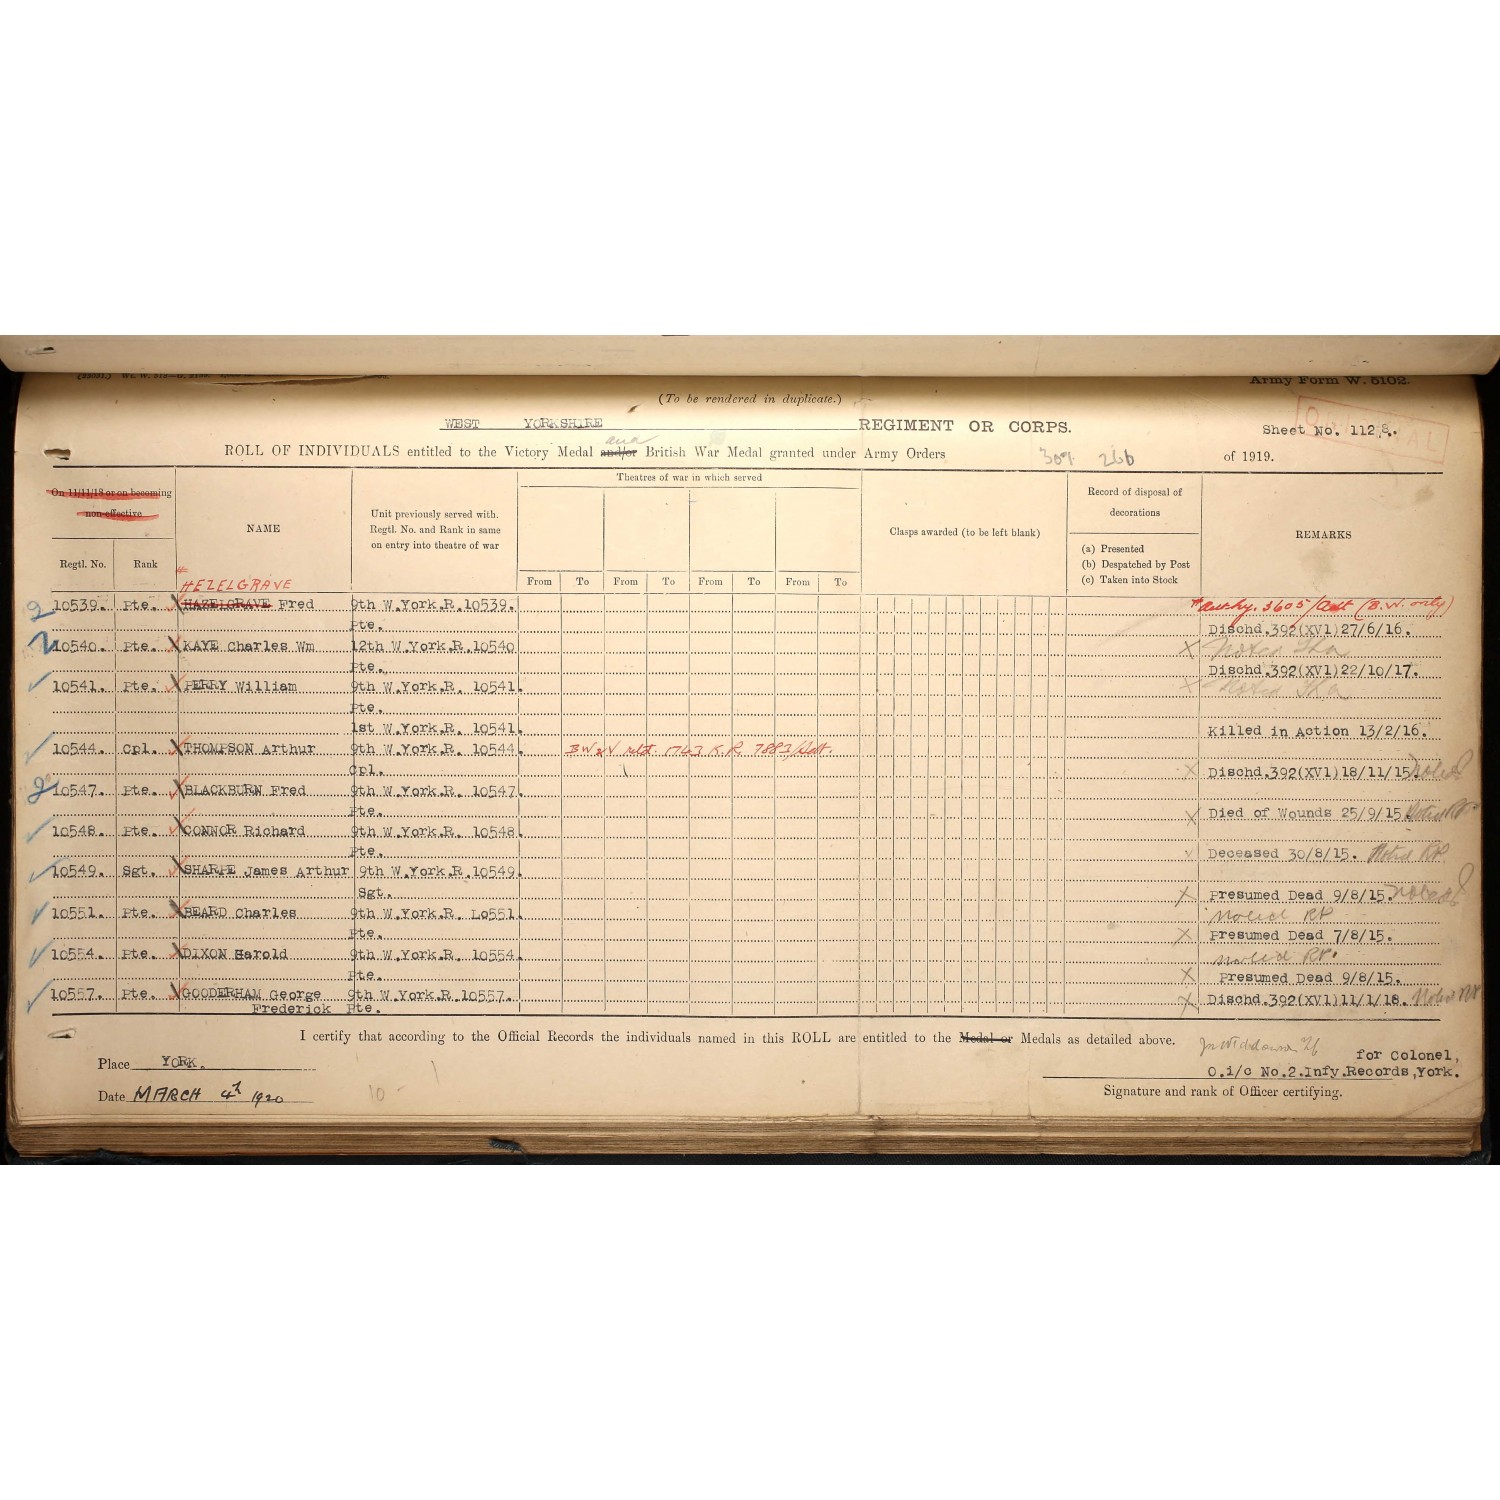 Army Form W. 5102.
(To be rendered in duplicate.)
WEST YORKSHIRE REGIMENT OR CORPS.
Sheet No. 1128.
ORIGINAL
and
ROLL OF INDIVIDUALS entitled to the Victory Medal and/or British War Medal granted under Army Orders 301 266 of 1919.
On 11/11/18 or on becoming non-effective
Regtl. No.
Rank
NAME
Unit previously served with. Regtl. No. and Rank in same on entry into theatre of war
Theatres of war in which served
From To From To From To From To
Clasps awarded (to be left blank)
Record of disposal of decorations
(a) Presented
(b) Despatched by Post
(c) Taken into Stock
REMARKS
HEZELGRAVE
10539. Pte. HAZELGRAVE Fred 9th W.York.R.10539. Authy. 3605/Adt (B.W. only)
Pte. Dischd.392(XVI)27/6/16.
10540. Pte. KAYE Charles Wm 12th W.York.R.10540 Noted
Pte. Dischd.392(XVI)22/10/17.
10541. Pte. PERRY William 9th W.York.R. 10541. Noted
Pte.
1st W.York.R. 10541. Killed in Action 13/2/16.
10544. Cpl. THOMPSON Arthur 9th W.York.R. 10544. BW&V retd. 1743 K.R. 7883/Adt.
Cpl. Dischd.392(XVI)18/11/15 Noted
10547. Pte. BLACKBURN Fred 9th W.York.R. 10547.
Pte. Died of Wounds 25/9/15 Noted RP
10548. Pte. CONNOR Richard 9th W.York.R. 10548.
Pte. Deceased 30/8/15. Noted RP.
10549. Sgt. SHARPE James Arthur 9th W.York.R. 10549.
Sgt. Presumed Dead 9/8/15. Noted
10551. Pte. BEARD Charles 9th W.York.R. Lo551. Noted RP
Pte. Presumed Dead 7/8/15.
10554. Pte. DIXON Harold 9th W.York.R. 10554. Noted RP.
Pte. Presumed Dead 9/8/15.
10557. Pte. GOODERHAM George 9th W.York.R.10557. Dischd.392(XVI)11/1/18. Noted RP
Frederick Pte.
I certify that according to the Official Records the individuals named in this ROLL are entitled to the Medal or Medals as detailed above.
for Colonel,
Place YORK.
O.i/c No.2.Infy.Records,York.
Date MARCH 4th 1920
Signature and rank of Officer certifying.
10 -